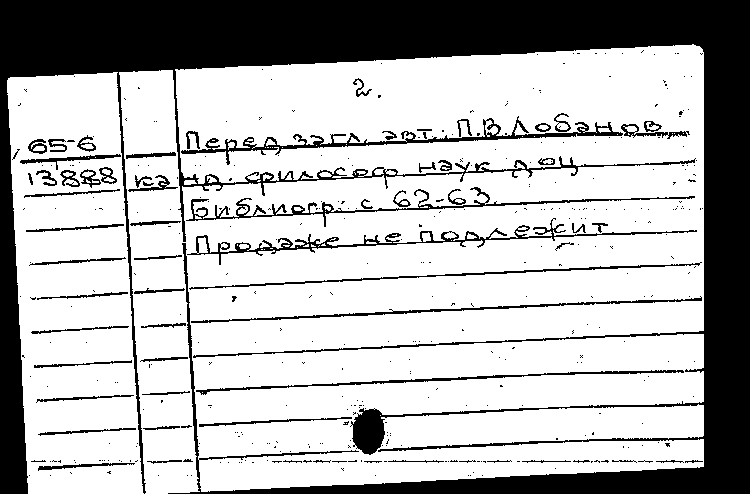 2.
65-6 Перед загл. авт.: П.В.Лобанов
13888 канд. философ. наук доц.
Библиогр: с. 62-63.
Продаже не подлежит